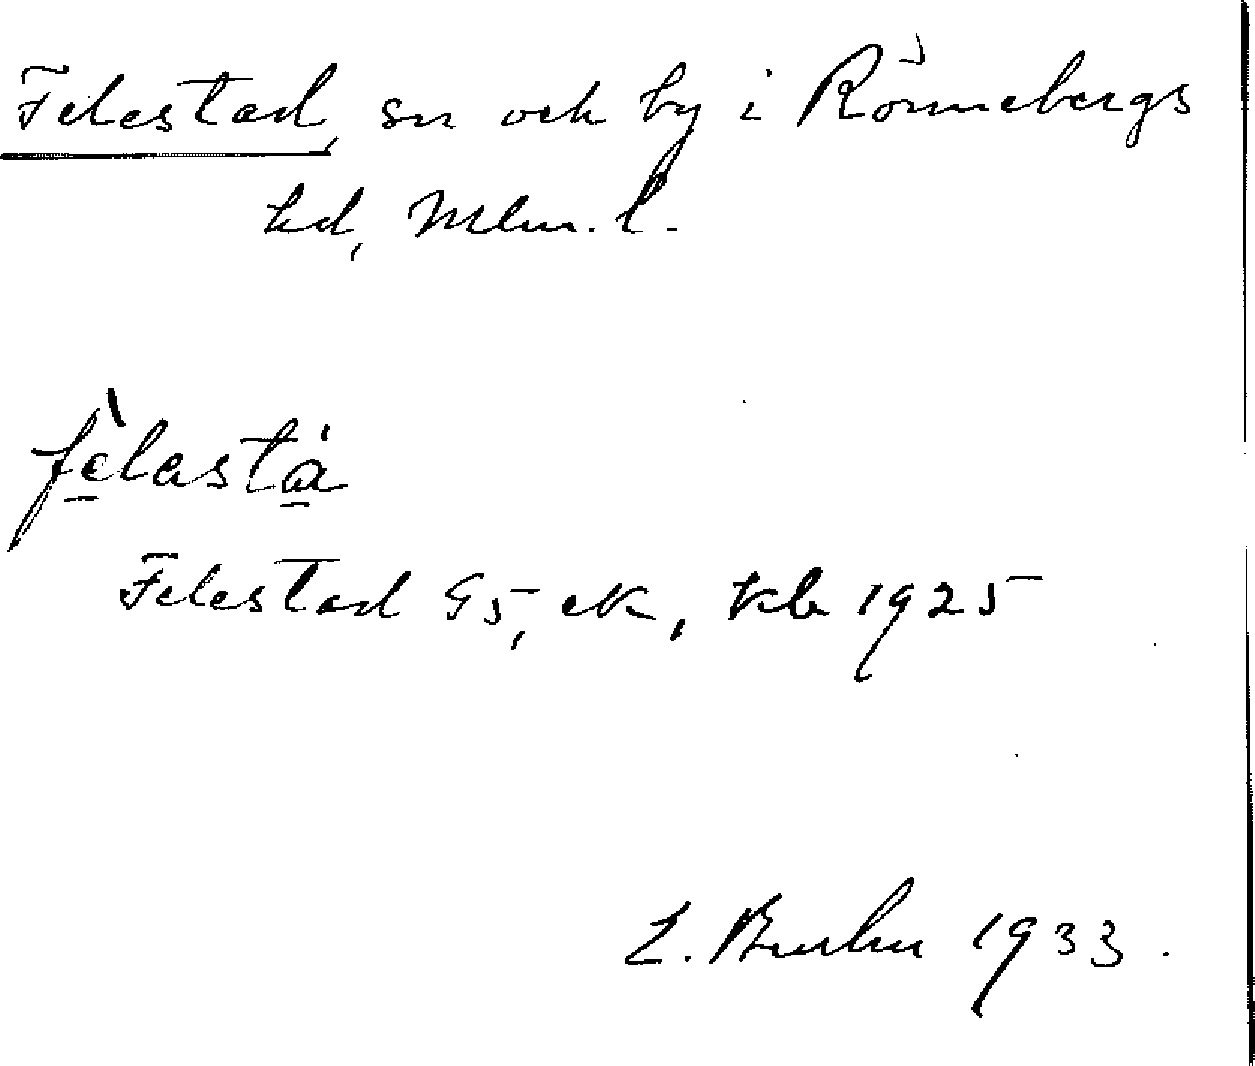 Felestad, sn och by i Rönnebergs
hd, Mlm. l.
fèlastá
Felestad G5, eK, Kb 1925
L. Bruhn 1933.